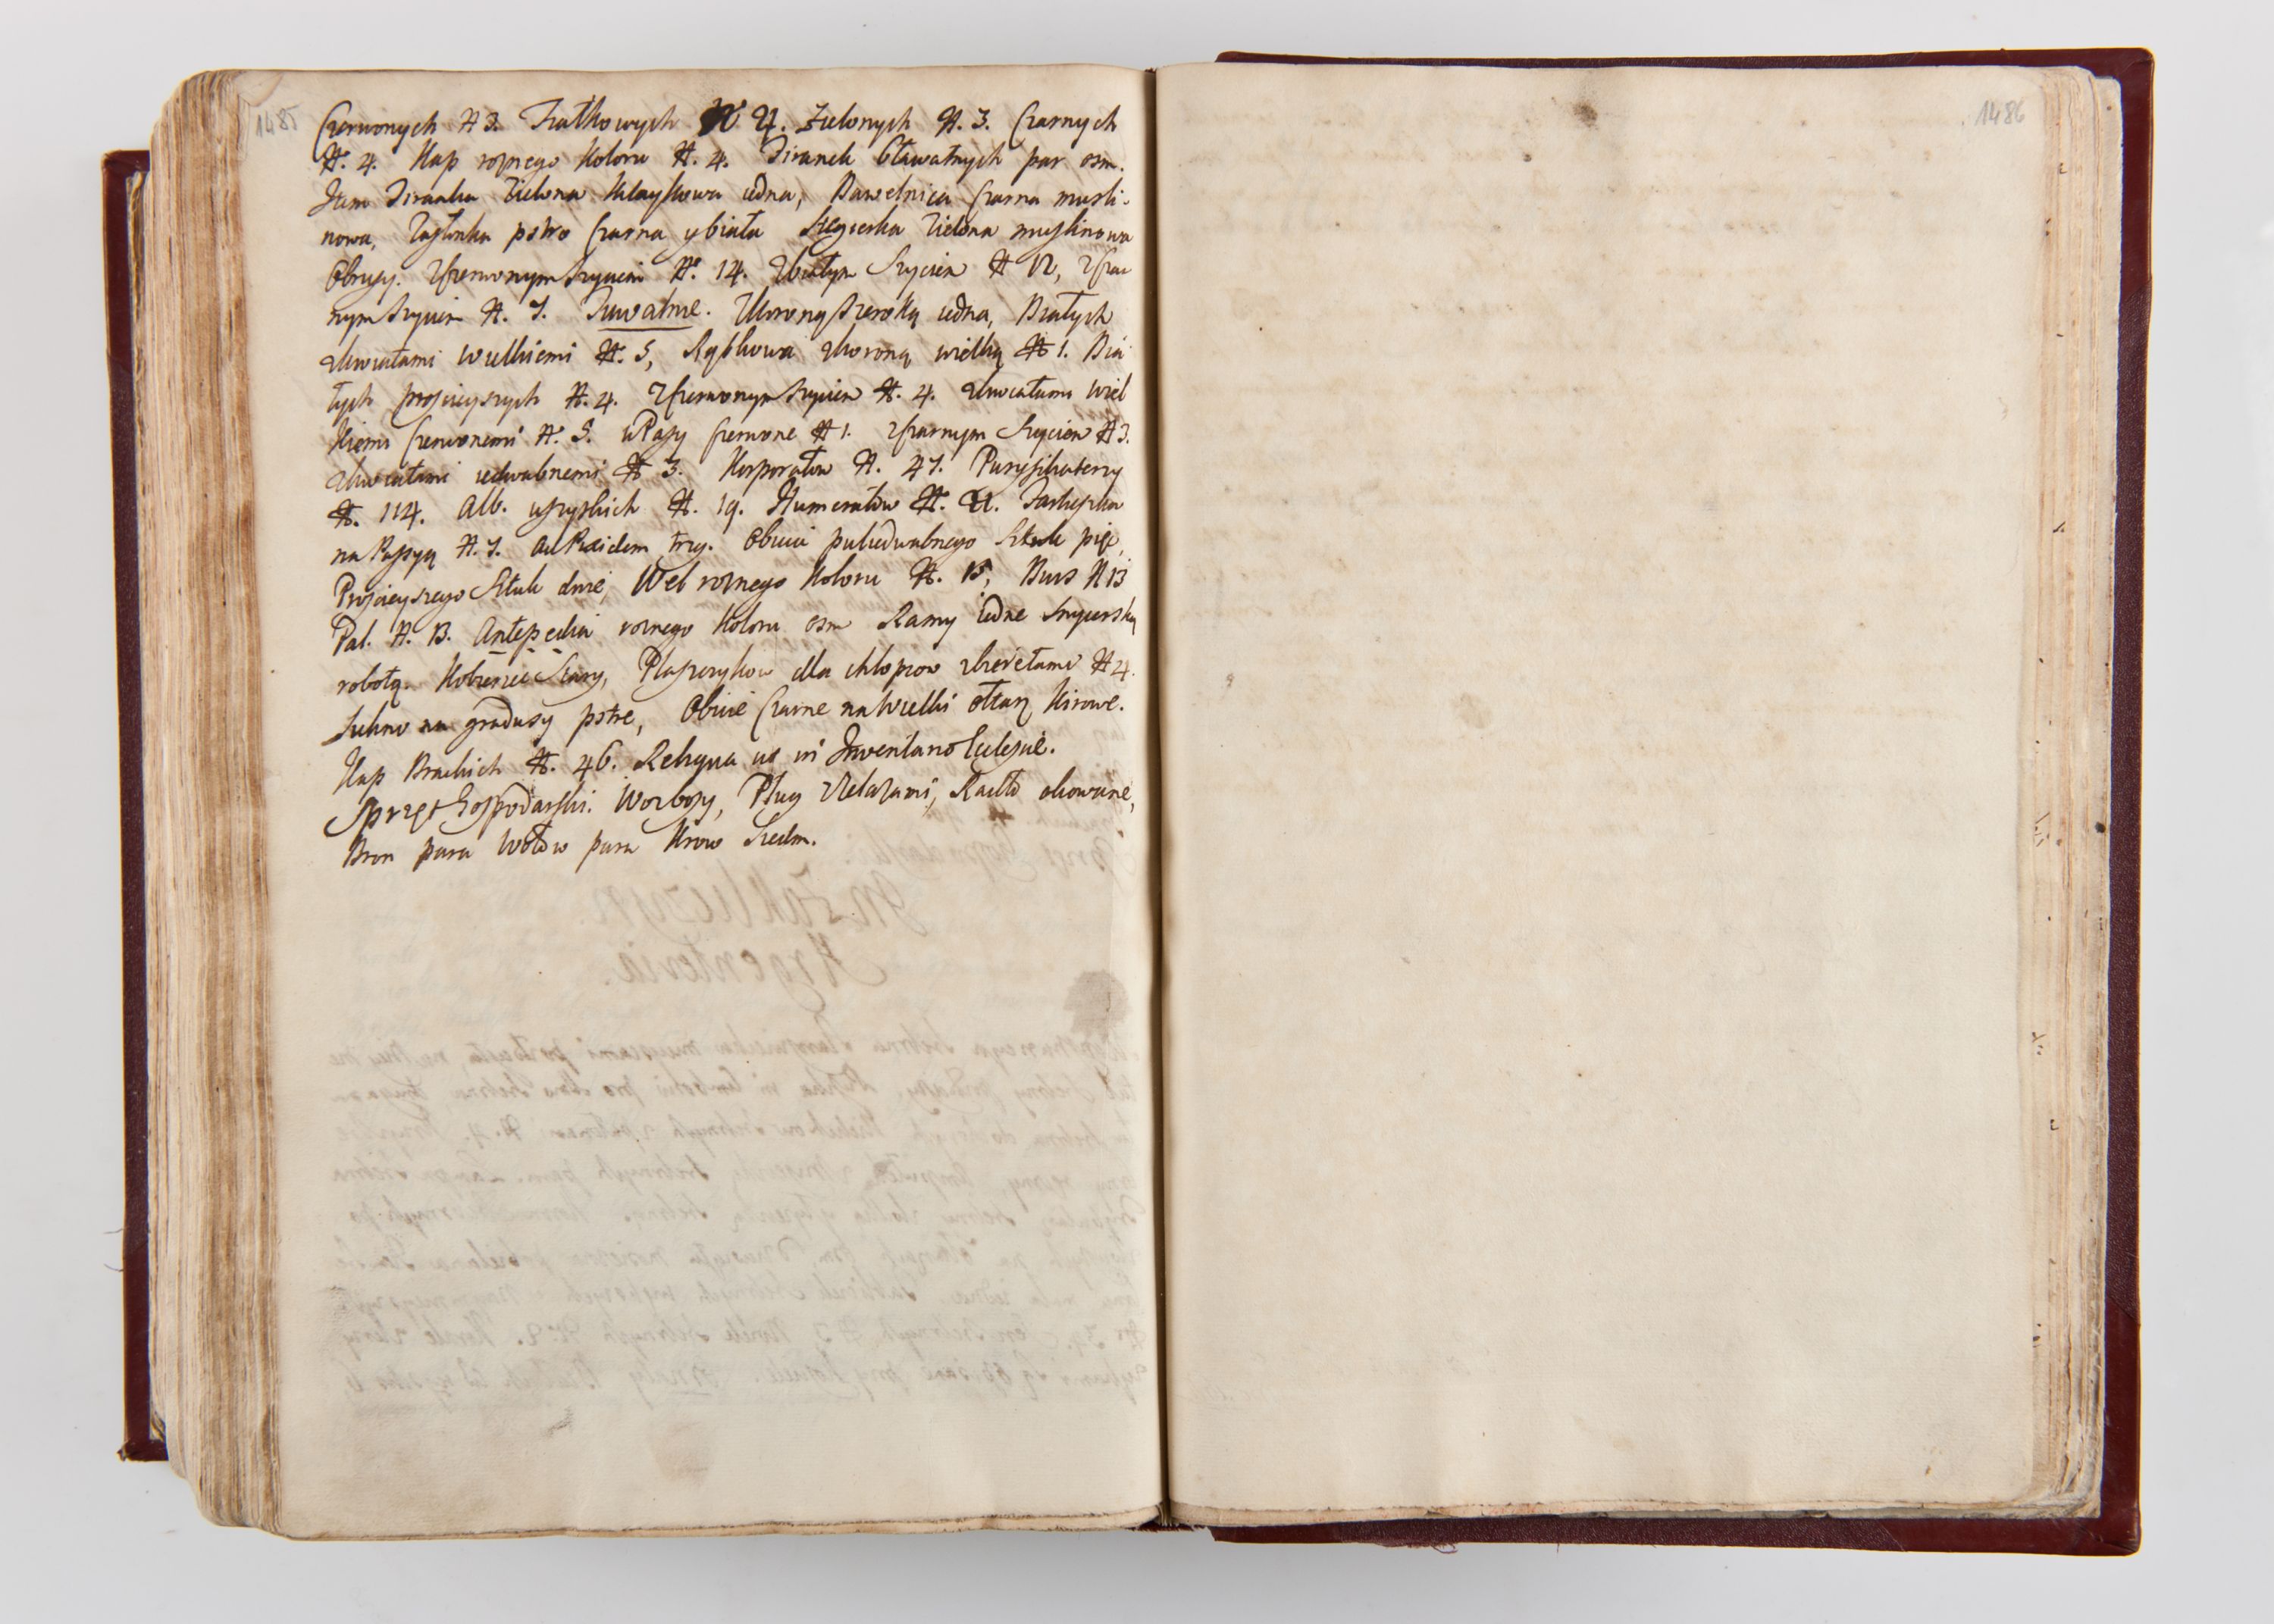 1485
Czerwonych N 3. Fiałkowych N 4. Zielonych N. 3. Czarnych
N. 4. Kap roznego Koloru N. 4. Firanek bławatnych par osm.
Item Firanka Zielona Kitaykowa iedna, Bawełnica Czarna musli-
nowa, pstro Czarna y biała Zielona muslinowa
Obrusy. Zczerwonym szyciem N. 14. Zbiałym Szyciem N 12, Zczar
nym szyciem N. 7. Tuwalnie. Zkoroną szeroką iedna, Białych
zkwiatami wielkiemi N. 5, Rąbkowa zkoroną wielką N 1. Bia
łych prosciejszych N. 4. Zczerwonym szyciem N. 4. zkwiatami wiel
kiemi Czerwonemi N. 5. w Pasy czerwone N 1. zczarnym Szyciem N 3.
zkwiatami iedwabnemi N 3. Korporałow N. 47. Puryfikaterzy
N. 114. Alb. wszystkich N. 19. Humerałow N. 21.
na Passyą N. 7. trzy. Obicia pułiedwabnego Sztuk pięć,
Prosciejszego Sztuk dwie, Wel roznego Koloru N. 15, Burs N 13
Pal. N. 13. Antepedia roznego Koloru osm Ramy iedne Snycerską
robotą. Kobierzec Stary, Płaszczykow dla chłopcow zbieretami N 4.
Sukno na gradusy pstre, Obicie Czarne na Wielki ołtarz Kirowe.
Kap Brackich N. 46. Reliqua ut in Inventario Ecclesiæ.
Sprzęt Gospodarski. Woz bosy, Pług zżelazami, Radło okowane,
Bron para Wołow para Krow Siedm.
1486